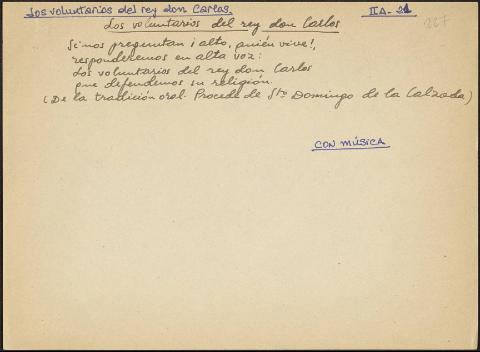 Los voluntarios del rey don Carlos. IIA-21
267
Los voluntarios del rey don Carlos
Si nos preguntan ¡alto, quién vive!,
responderemos en alta voz:
Los voluntarios del rey don Carlos
que defendemos su religión.
(De la tradición oral. Procede de Sto Domingo de la Calzada)
CON MÚSICA